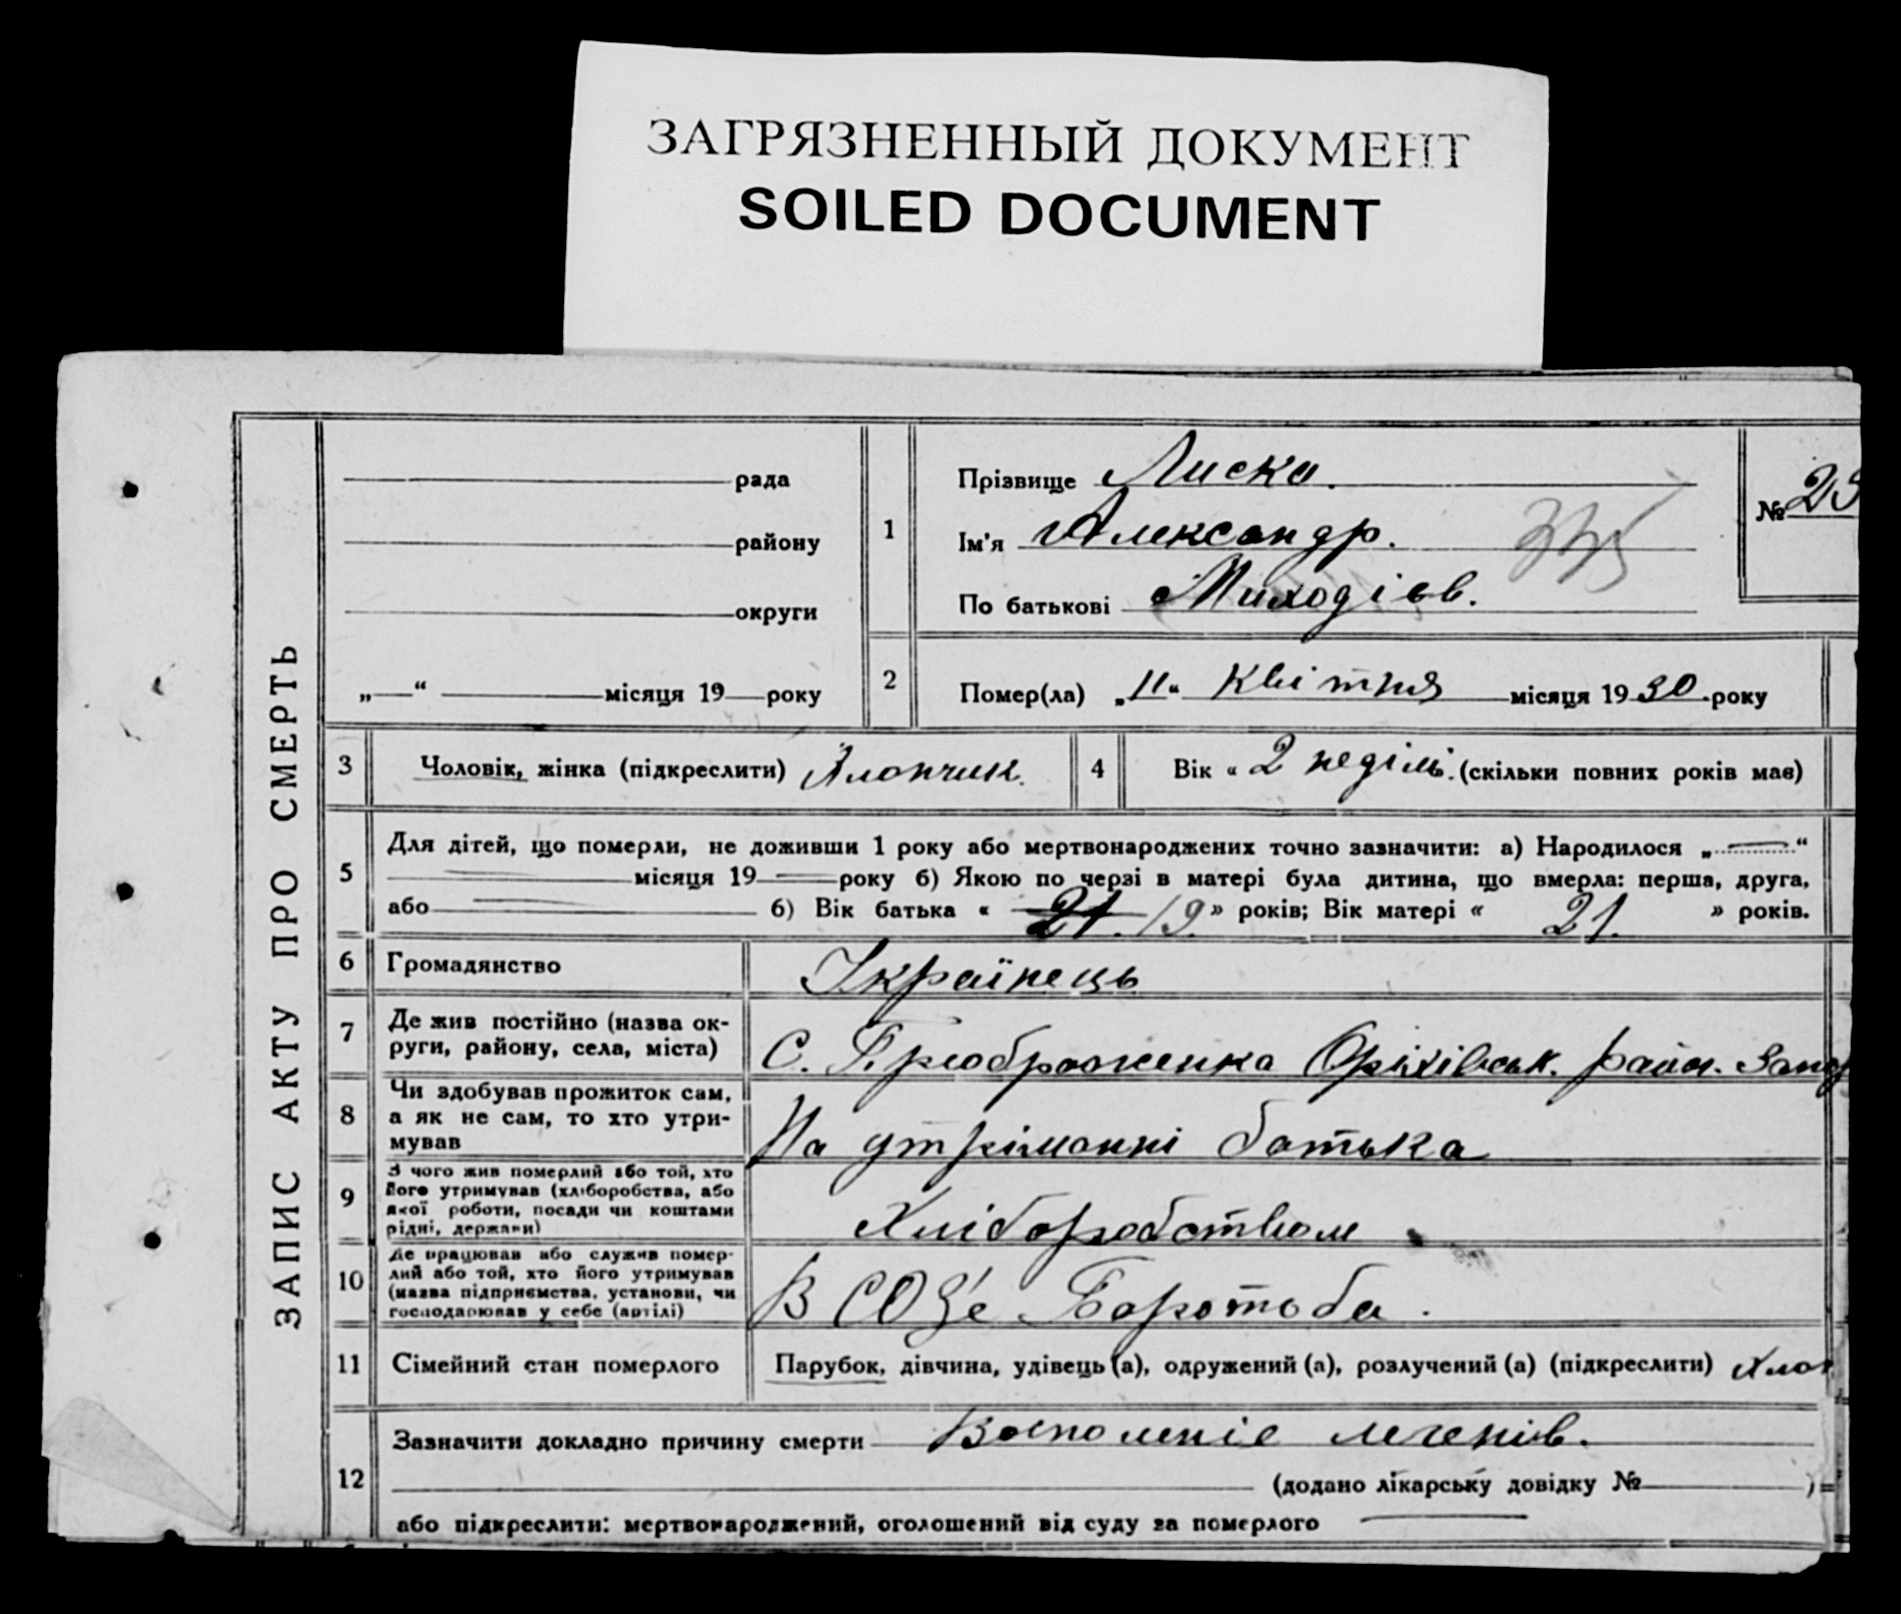 ЗАГРЯЗНЕННЫЙ ДОКУМЕНТ
SOILED DOCUMENT
ЗАПИС АКТУ ПРО СМЕРТЬ
рада
району
округи
„—“ місяця 19 року
1
Прізвище Лиско.
Ім'я Александр.
По батькові
№ 23
2
Помер(ла) „11“ Квітня місяця 1930 року
3
Чоловік, жінка (підкреслити) Хлопчик.
4
Вік « 2 неділі. (скільки повних років має)
5
Для дітей, що померли, не доживши 1 року або мертвонароджених точно зазначити: а) Народилося „ “
місяця 19 року б) Якою по черзі в матері була дитина, що вмерла: перша, друга,
або б) Вік батька « 21. 19. » років; Вік матері « 21. » років.
6
Громадянство
Українець
7
Де жив постійно (назва ок-
руги, району, села, міста)
С. Преображенка Оріхівськ. район. Запор
8
Чи здобував прожиток сам,
а як не сам, то хто утри-
мував
На утріманні батька
9
З чого жив померлий або той, хто
його утримував (хліборобства, або
якої роботи, посади чи коштами
рідні, держави)
Хліборобством
10
Де працював або служив помер-
лий або той, хто його утримував
(назва підприємства, установи, чи
господарював у себе (артілі)
В СОЗ'е Боротьба.
11
Сімейний стан померлого
Парубок, дівчина, удівець (а), одружений (а), розлучений (а) (підкреслити) Хлоп
12
Зазначити докладно причину смерти легенів.
(додано лікарську довідку № )
або підкреслити: мертвонароджений, оголошений від суду за померлого